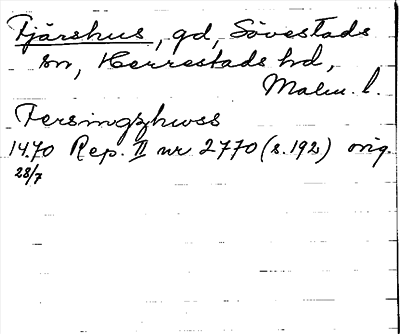 Fjärshus, gd, Sövestads
sn, Herrestads hd,
Malm. l.
Fersingszhwss
1470 Rep. II nr 2770 (s. 192) orig.
28/7